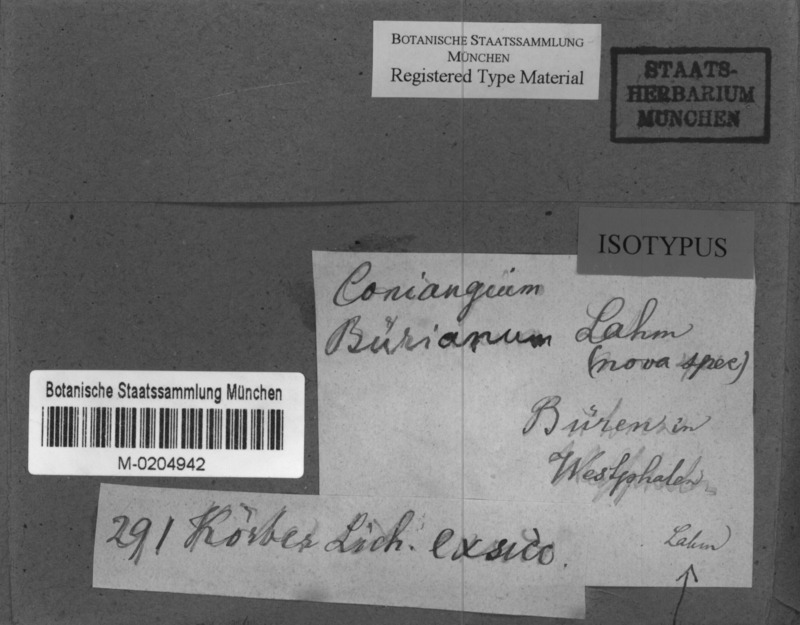 BOTANISCHE STAATSSAMMLUNG
MÜNCHEN
Registered Type Material
STAATS-
HERBARIUM
MÜNCHEN
ISOTYPUS
Coniangium
Bürianum Lahm
(nova spec)
Büren in
Westphalen
Lahm
Botanische Staatssammlung München
M-0204942
291 Körber Lich. exsicc.